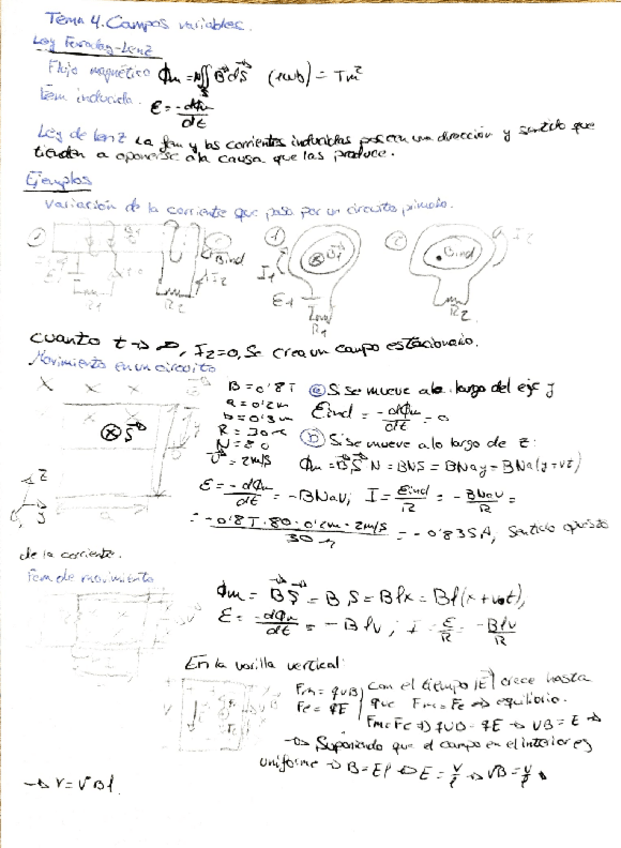 Tema 4. Campos variables.
Ley Faraday-Lenz
Flujo magnético Φm = N∬ B⃗ dS⃗ (1wb) = Tm²
s
fem inducida. ε = -dΦm/dt
Ley de Lenz La fem y las corrientes inducidas poseen una dirección y sentido que
tienden a oponerse a la causa que las produce.
Ejemplos
Variación de la corriente que pasa por un circuito primario.
1 2 1 2
Bind B1 Bind I2
I1 I2
ε1
R1 R2 R1 R2
cuanto t → ∞, I2=0, Se crea un campo estacionario.
Movimiento en un circuito
X X X
B = 0'8T
a = 0'2m
b = 0'3m
R = 30
N = 80
V⃗ = 2m/s
S⃗
z
y
a
a Si se mueve a lo largo del eje y
εind = -dΦm/dt = 0
b Si se mueve a lo largo de z:
Φm = B⃗S⃗N = BNS = BNay = BNa(y+vz)
ε = -dΦm/dt = -BNaV; I = εind/R = -BNaV/R =
= -0'8T·80·0'2m·2m/s / 30 = -0'835A, Sentido opuesto
de la corriente.
Fem de movimiento
Φm = B⃗S⃗ = B S = Blx = Bl(x+v0t),
ε = -dΦm/dt = -Blv; I = ε/R = -Blv/R
En la varilla vertical:
Fm = qvB
Fe = qE
con el tiempo |E| crece hasta
que Fm = Fe → equilibrio.
Fm=Fe → qvB = qE → vB = E →
→ Suponiendo que el campo en el interior es
uniforme → B = El → E = V/l → vB = V/l
→ V = vBl.